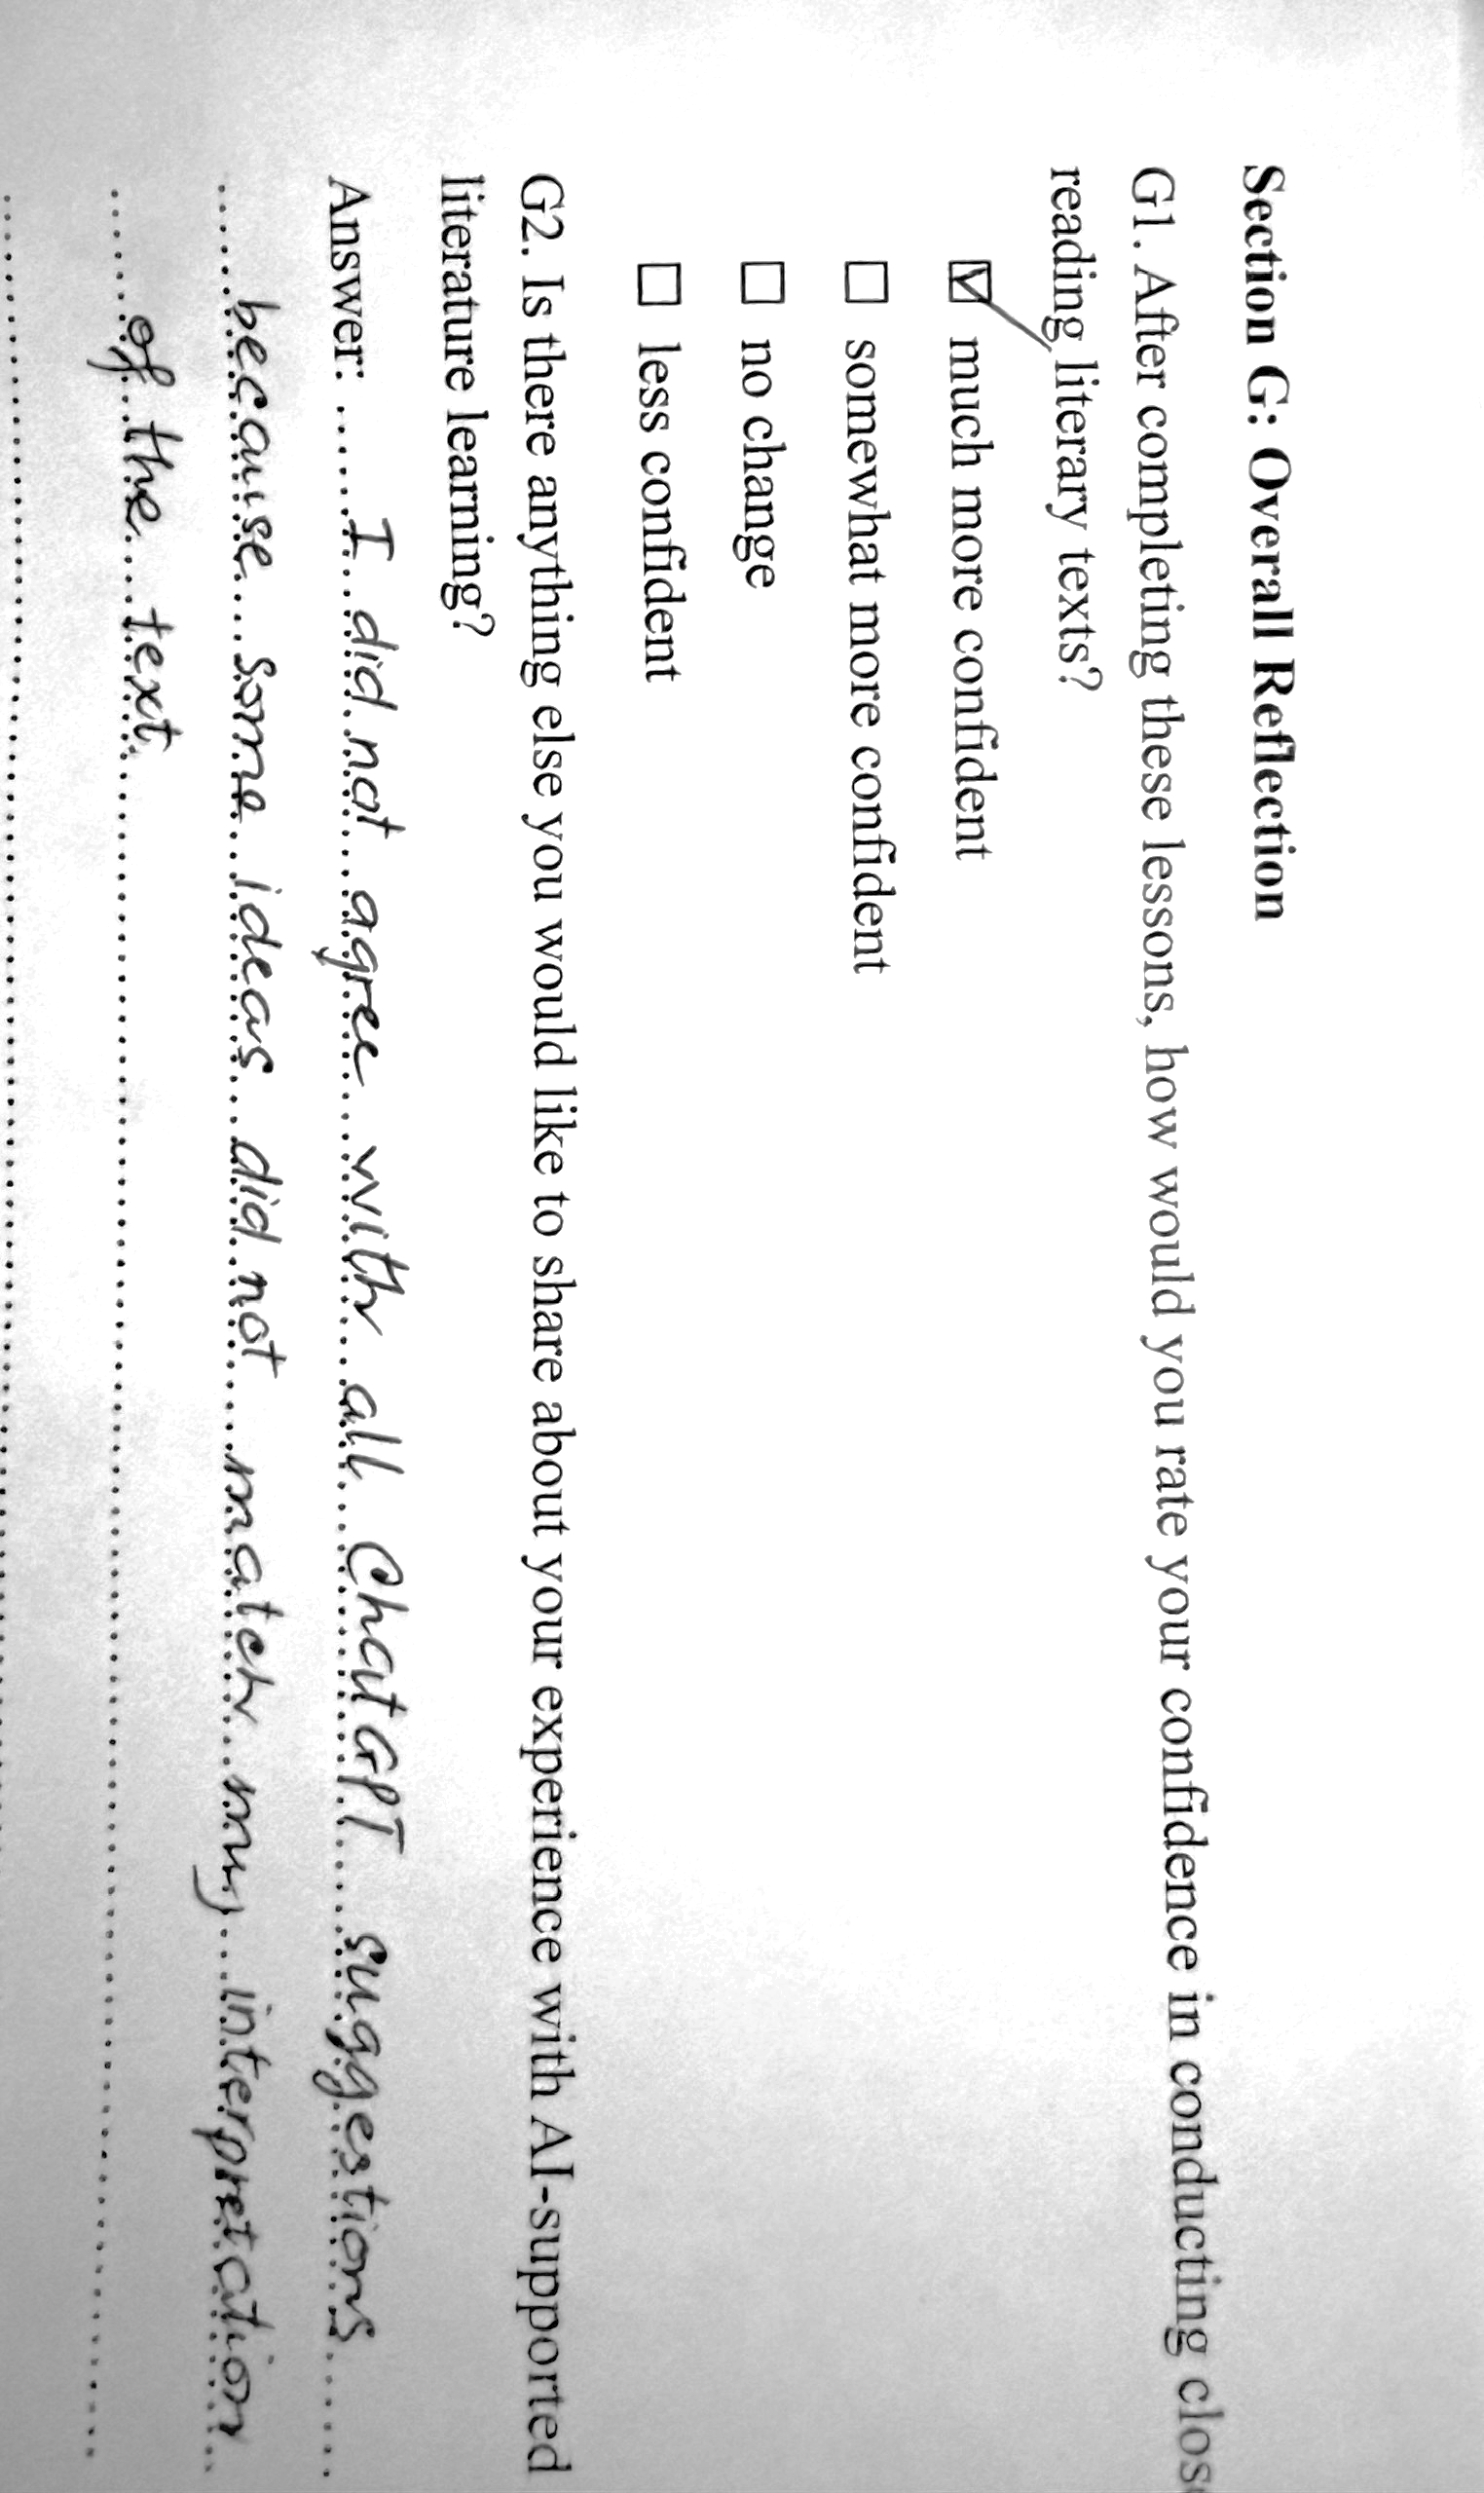 Section G: Overall Reflection
G1. After completing these lessons, how would you rate your confidence in conducting close
reading literary texts?
☑ much more confident
☐ somewhat more confident
☐ no change
☐ less confident
G2. Is there anything else you would like to share about your experience with AI-supported
literature learning?
Answer: I did not agree with all ChatGPT suggestions
because some ideas did not match my interpretation
of the text.